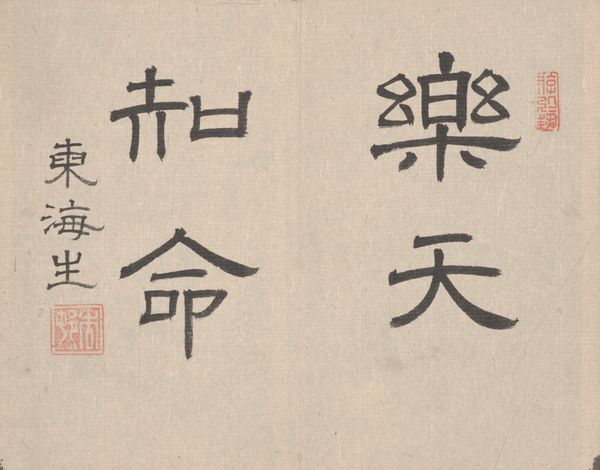 樂天
知命
東海生